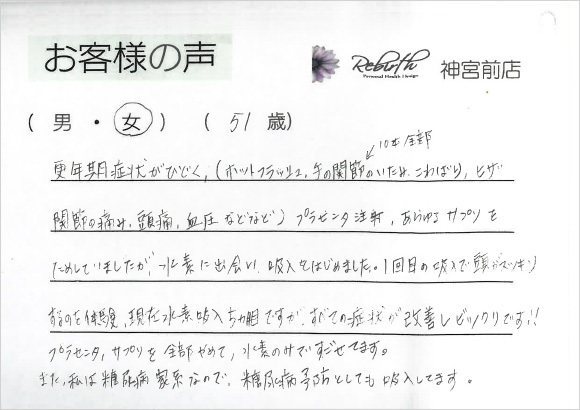 お客様の声
Rebirth
Personal Health Design
神宮前店
( 男 ・ 女 ) ( 51 歳)
10本全部
更年期症状がひどく,(ホットフラッシュ,手の関節のいたみ,こわばり,ヒザ
関節の痛み,頭痛,血圧などなど) プラセンタ注射,あらゆるサプリを
ためしていましたが,水素に出会い,吸入をはじめました。1回目の吸入で頭がスッキリ
するのを体験,現在水素吸入 ヶ月目ですが,すべての症状が改善しビックリです!!
プラセンタ,サプリを全部やめて,水素のみですごせてます。
また,私は糖尿病家系なので,糖尿病予防としても吸入してます。